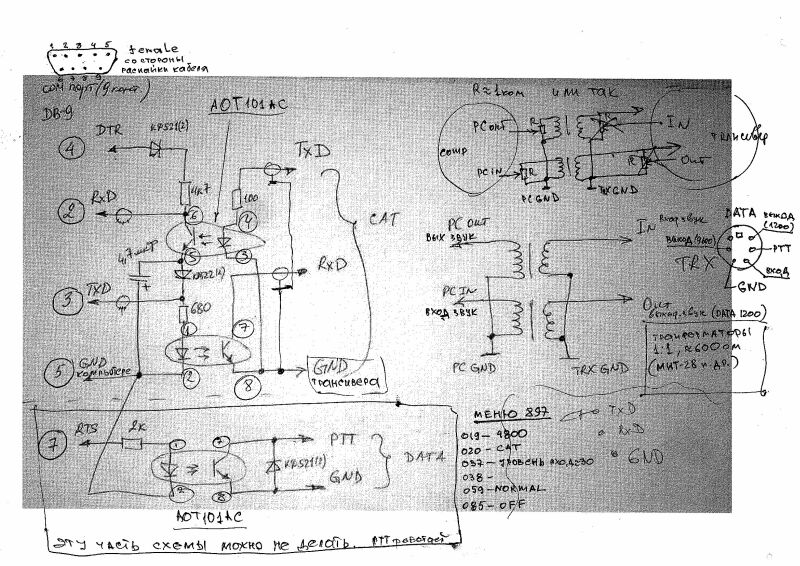 1 2 3 4 5
female
со стороны
распайки кабеля
6 7 8 9
COM порт (9 конт.)
DB-9
АОТ101АС
4
DTR
КД521(2)
TxD
4k7
100
2
RxD
6
4
CAT
5
3
4,7 мкФ
КД522(2)
RxD
3
TXD
680
1
7
5
GND
компьютера
2
8
GND
трансивера
7
RTS
2k
1
PTT
КД521(2)
DATA
2
8
GND
АОТ101АС
ЭТУ ЧАСТЬ СХЕМЫ МОЖНО НЕ ДЕЛАТЬ. PTT работает
R≈1ком
или так
PC OUT
R
IN
comp
трансивер
PC IN
R
R
Out
PC GND
TRX GND
PC OUT
In
Вход звук
ВЫХ ЗВУК
PC IN
Out
ВХОД ЗВУК
выход. звук (DATA 1200)
PC GND
TRX GND
DATA
ВЫХОД
(1200)
ВЫХОД (9600)
PTT
TRX
ВХОД
GND
ТРАНСФОРМАТОРЫ
1:1, ≈600 ом
(МИТ-28 и др.)
МЕНЮ 897
019 – 4800
020 – CAT
037 – УРОВЕНЬ ВХОД=30
038 –
059 – NORMAL
085 – OFF
TxD
RxD
GND